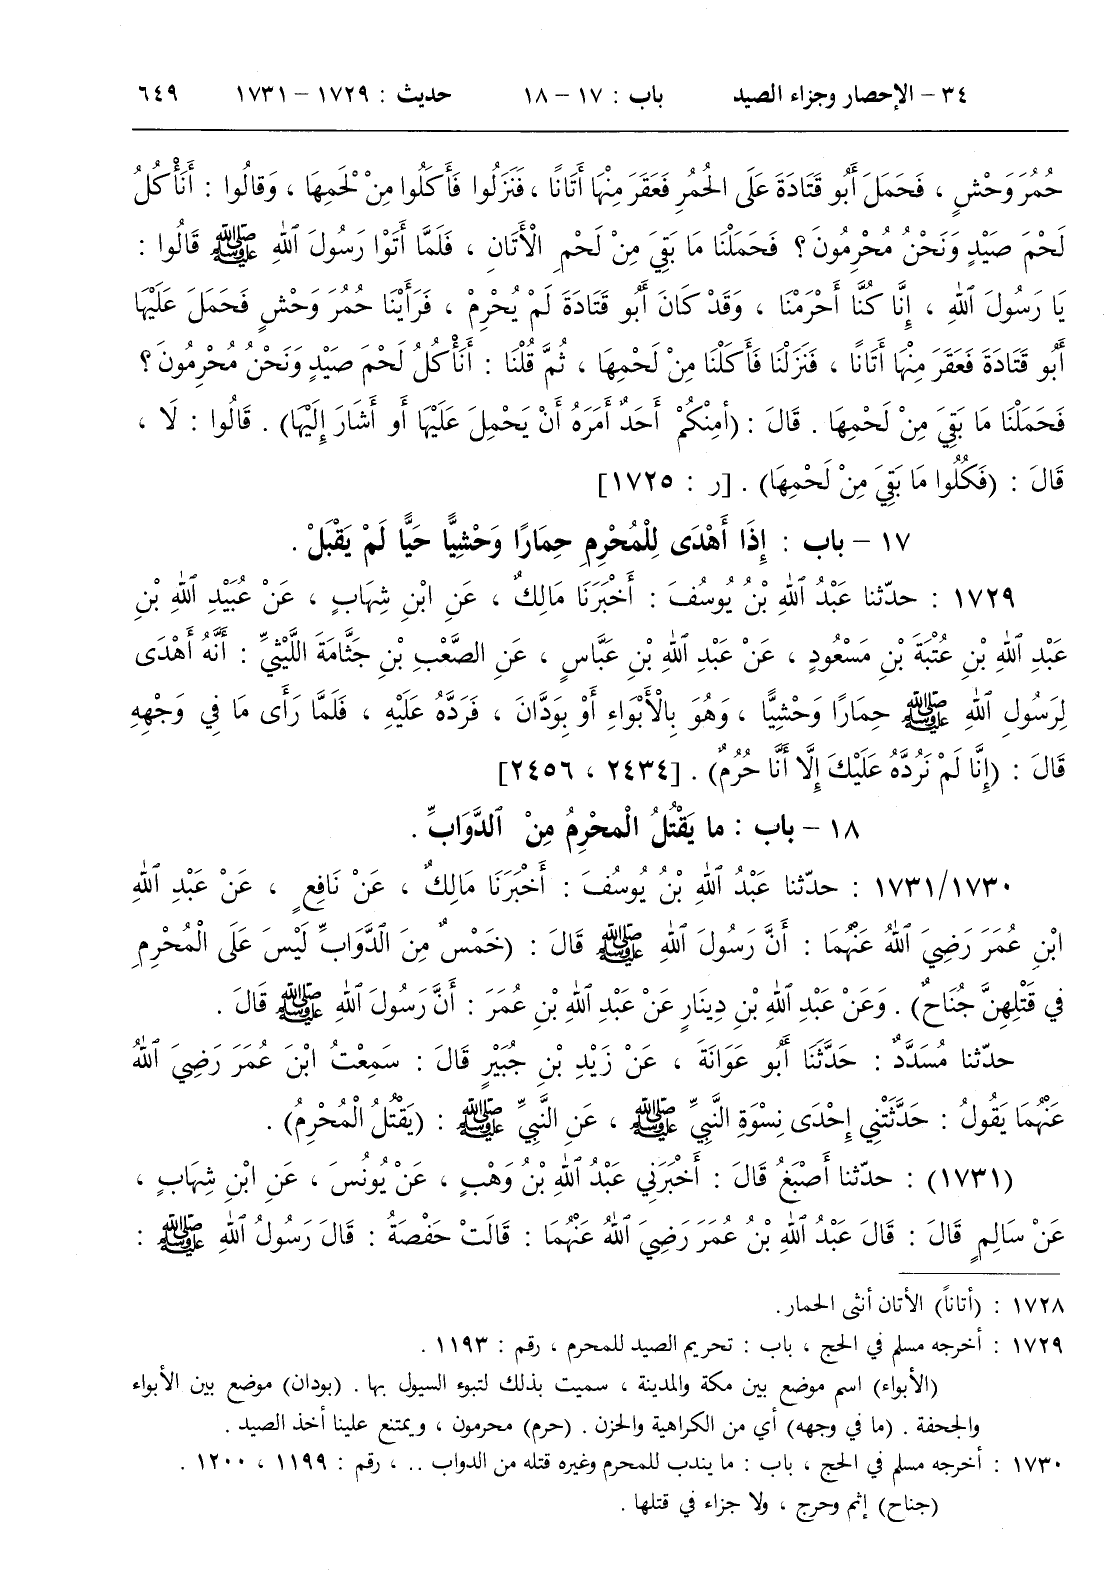 ٣٤ - الإحصار وجزاء الصيد باب : ١٧ - ١٨ حديث : ١٧٢٩ - ١٧٣١ ٦٤٩
حُمُرَ وَحْشٍ ، فَحَمَلَ أَبُو قَتَادَةَ عَلَى الْحُمُرِ فَعَقَرَ مِنْهَا أَتَانًا ، فَنَزَلُوا فَأَكَلُوا مِنْ لَحْمِهَا ، وَقالُوا : أَنَأْكُلُ
لَحْمَ صَيْدٍ وَنَحْنُ مُحْرِمُونَ ؟ فَحَمَلْنَا مَا بَقِيَ مِنْ لَحْمِ الْأَتَانِ ، فَلَمَّا أَتَوْا رَسُولَ اللهِ ﷺ قَالُوا :
يَا رَسُولَ اللهِ ، إِنَّا كُنَّا أَحْرَمْنَا ، وَقَدْ كَانَ أَبُو قَتَادَةَ لَمْ يُحْرِمْ ، فَرَأَيْنَا حُمُرَ وَحْشٍ فَحَمَلَ عَلَيْهَا
أَبُو قَتَادَةَ فَعَقَرَ مِنْهَا أَتَانًا ، فَنَزَلْنَا فَأَكَلْنَا مِنْ لَحْمِهَا ، ثُمَّ قُلْنَا : أَنَأْكُلُ لَحْمَ صَيْدٍ وَنَحْنُ مُحْرِمُونَ ؟
فَحَمَلْنَا مَا بَقِيَ مِنْ لَحْمِهَا . قَالَ : (أمِنْكُمْ أَحَدٌ أَمَرَهُ أَنْ يَحْمِلَ عَلَيْهَا أَو أَشَارَ إِلَيْهَا) . قَالُوا : لَا ،
قَالَ : (فَكُلُوا مَا بَقِيَ مِنْ لَحْمِهَا) . [ر : ١٧٢٥]
١٧ - باب : إِذَا أَهْدَى لِلْمُحْرِمِ حِمَارًا وَحْشِيًّا حَيًّا لَمْ يَقْبَلْ .
١٧٢٩ : حدّثنا عَبْدُ اللهِ بْنُ يُوسُفَ : أَخْبَرَنَا مَالِكٌ ، عَنِ ابْنِ شِهَابٍ ، عَنْ عُبَيْدِ اللهِ بْنِ
عَبْدِ اللهِ بْنِ عُتْبَةَ بْنِ مَسْعُودٍ ، عَنْ عَبْدِ اللهِ بْنِ عَبَّاسٍ ، عَنِ الصَّعْبِ بْنِ جَثَّامَةَ اللَّيْثِيِّ : أَنَّهُ أَهْدَى
لِرَسُولِ اللهِ ﷺ حِمَارًا وَحْشِيًّا ، وَهُوَ بِالْأَبْوَاءِ أَوْ بِوَدَّانَ ، فَرَدَّهُ عَلَيْهِ ، فَلَمَّا رَأَى مَا فِي وَجْهِهِ
قَالَ : (إِنَّا لَمْ نَرُدَّهُ عَلَيْكَ إِلَّا أَنَّا حُرُمٌ) . [٢٤٣٤ ، ٢٤٥٦]
١٨ - باب : ما يَقْتُلُ الْمحْرِمُ مِنْ الدَّوَابِّ .
١٧٣١/١٧٣٠ : حدّثنا عَبْدُ اللهِ بْنُ يُوسُفَ : أَخْبَرَنَا مَالِكٌ ، عَنْ نَافِعٍ ، عَنْ عَبْدِ اللهِ
ابْنِ عُمَرَ رَضِيَ اللهُ عَنْهُمَا : أَنَّ رَسُولَ اللهِ ﷺ قَالَ : (خَمْسٌ مِنَ الدَّوَابِّ لَيْسَ عَلَى الْمُحْرِمِ
في قَتْلِهِنَّ جُنَاحٌ) . وَعَنْ عَبْدِ اللهِ بْنِ دِينَارٍ عَنْ عَبْدِ اللهِ بْنِ عُمَرَ : أَنَّ رَسُولَ اللهِ ﷺ قَالَ .
حدّثنا مُسَدَّدٌ : حَدَّثَنَا أَبُو عَوَانَةَ ، عَنْ زَيْدِ بْنِ جُبَيْرٍ قَالَ : سَمِعْتُ ابْنَ عُمَرَ رَضِيَ اللهُ
عَنْهُمَا يَقُولُ : حَدَّثَتْنِي إِحْدَى نِسْوَةِ النَّبِيِّ ﷺ ، عَنِ النَّبِيِّ ﷺ : (يَقْتُلُ الْمُحْرِمُ) .
(١٧٣١) : حدّثنا أَصْبَغُ قَالَ : أَخْبَرَنِي عَبْدُ اللهِ بْنُ وَهْبٍ ، عَنْ يُونُسَ ، عَنِ ابْنِ شِهَابٍ ،
عَنْ سَالِمٍ قَالَ : قَالَ عَبْدُ اللهِ بْنُ عُمَرَ رَضِيَ اللهُ عَنْهُمَا : قَالَتْ حَفْصَةُ : قَالَ رَسُولُ اللهِ ﷺ :
١٧٢٨ : (أتاناً) الأتان أنثى الحمار.
١٧٢٩ : أخرجه مسلم في الحج ، باب : تحريم الصيد للمحرم ، رقم : ١١٩٣ .
(الأبواء) اسم موضع بين مكة والمدينة ، سميت بذلك لتبوء السيول بها . (بودان) موضع بين الأبواء
والجحفة . (ما في وجهه) أي من الكراهية والحزن . (حرم) محرمون ، ويمتنع علينا أخذ الصيد .
١٧٣٠ : أخرجه مسلم في الحج ، باب : ما يندب للمحرم وغيره قتله من الدواب .. ، رقم : ١١٩٩ ، ١٢٠٠ .
(جناح) إثم وحرج ، ولا جزاء في قتلها .